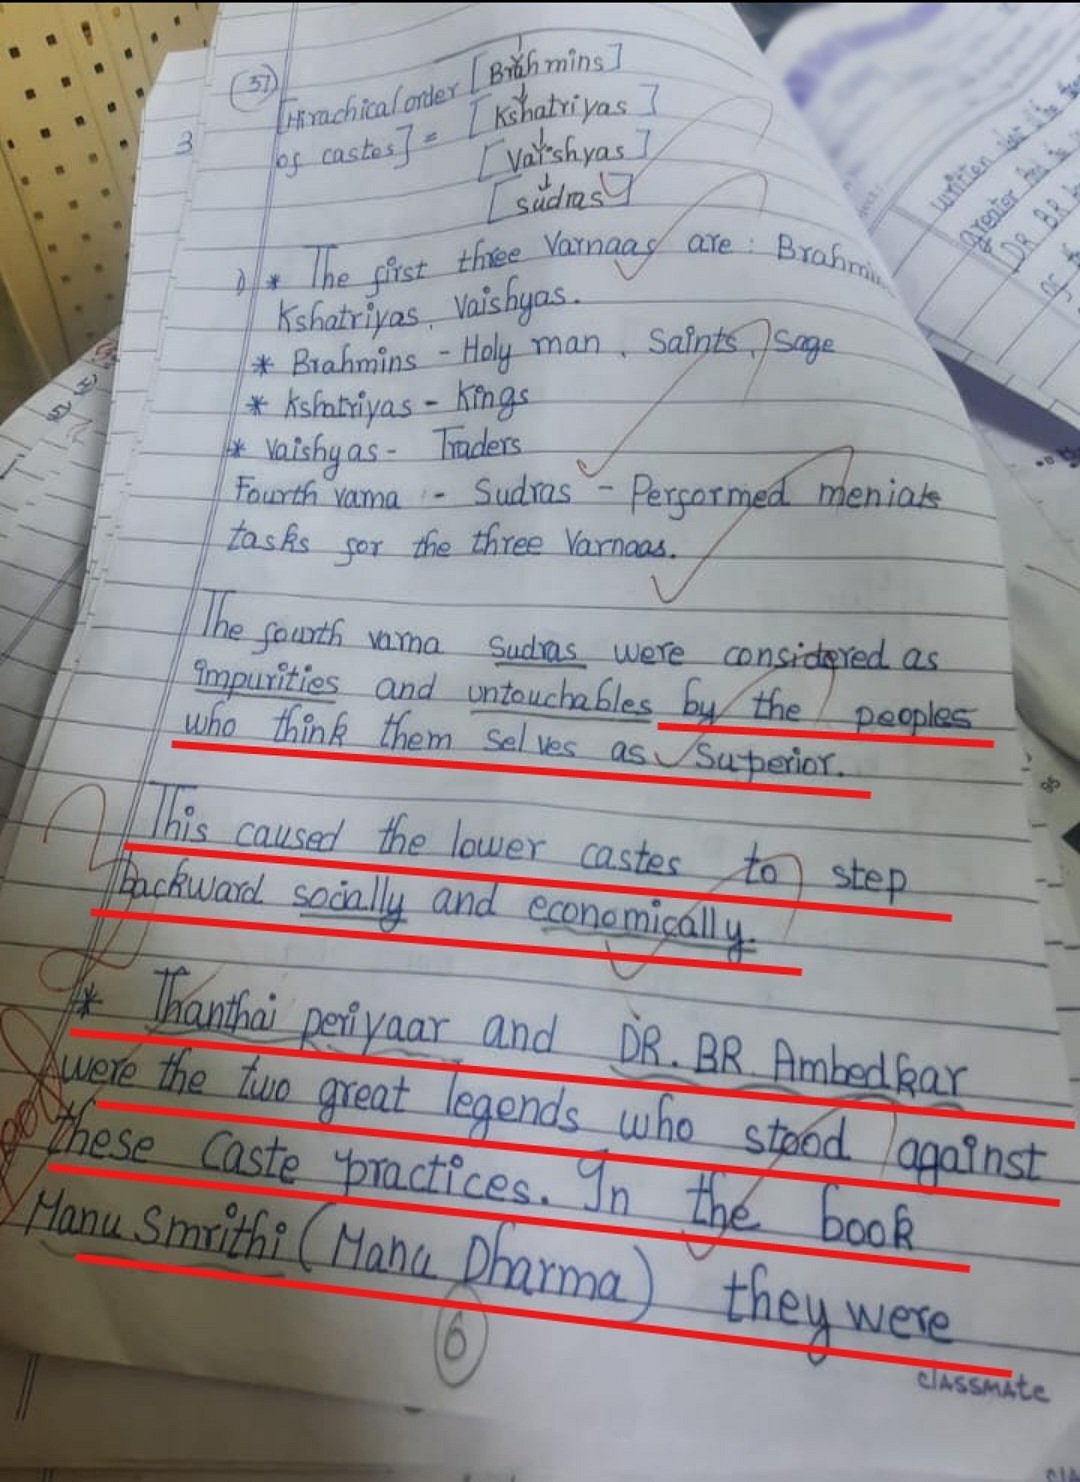 37)
3
[Hirachical order [Brahmins]
of castes] = [Kshatriyas]
[Vaishyas]
[Sudras]
1) * The first three Varnaas are : Brahmi
Kshatriyas, Vaishyas.
* Brahmins - Holy man, Saints, Sage
* Kshatriyas - Kings
* Vaishyas - Traders
Fourth varna :- Sudras - Performed meniale
tasks for the three Varnaas.
The fourth varna Sudras were considered as
impurities and untouchables by the peoples
who think them selves as Superior.
This caused the lower castes to step
Backward socially and economically.
* Thanthai periyaar and DR. BR. Ambedkar
were the two great legends who stood against
these Caste practices. In the book
Manu Smrithi (Manu Dharma) they were
6
classmate
written
greater
DR BR
of
95